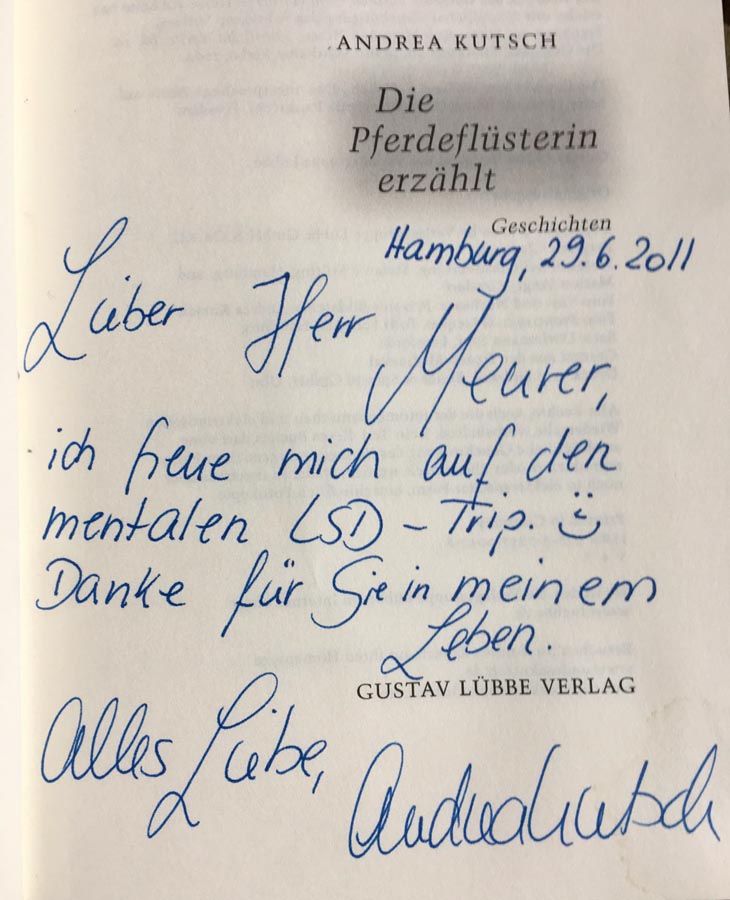 ANDREA KUTSCH
Die
Pferdeflüsterin
erzählt
Geschichten
Hamburg, 29.6.2011
Lieber Herr Meurer,
ich freue mich auf den
mentalen LSD-Trip. ü
Danke für Sie in meinem
Leben.
GUSTAV LÜBBE VERLAG
Alles Liebe,
Andrea Kutsch